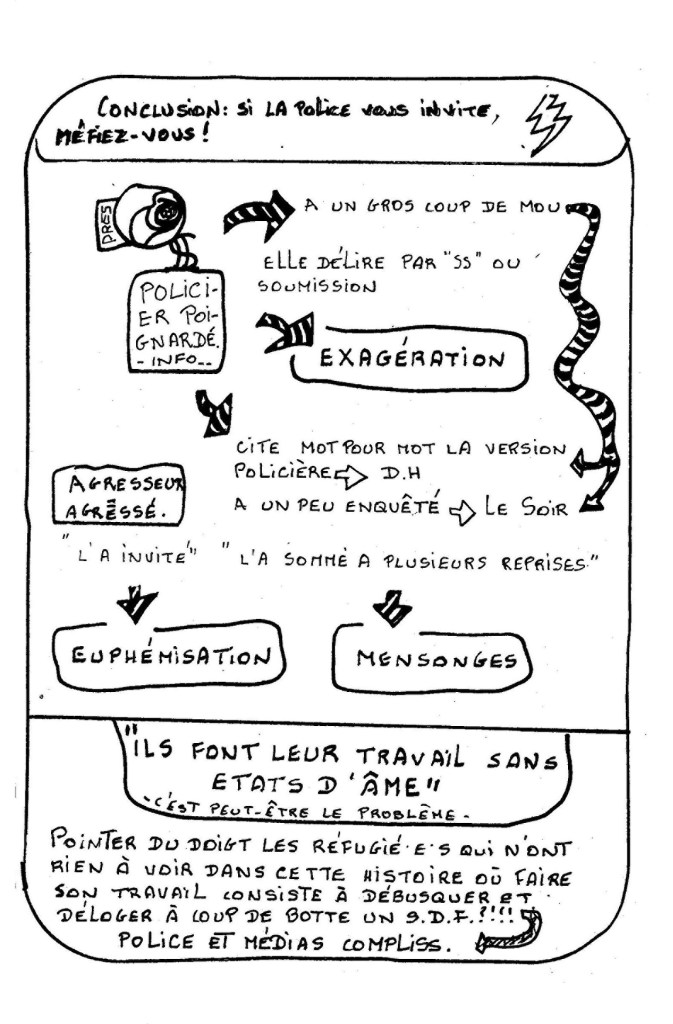 CONCLUSION: SI LA POLICE VOUS INVITE,
MÉFIEZ-VOUS!
PRES
A UN GROS COUP DE MOU
ELLE DÉLIRE PAR "SS" OU
SOUMISSION
POLICI-
ER POI-
GNARDÉ.
- INFO--
EXAGÉRATION
CITE MOT POUR MOT LA VERSION
POLICIÈRE ⇨ D.H
A UN PEU ENQUÊTÉ ⇨ LE SOIR
AGRESSEUR
AGRESSÉ.
"L'A INVITÉ" "L'A SOMMÉ A PLUSIEURS REPRISES."
EUPHÉMISATION
MENSONGES
"ILS FONT LEUR TRAVAIL SANS
ETATS D'ÂME"
-C'EST PEUT-ÊTRE LE PROBLÈME-
POINTER DU DOIGT LES RÉFUGIÉ·E·S QUI N'ONT
RIEN À VOIR DANS CETTE HISTOIRE OÙ FAIRE
SON TRAVAIL CONSISTE À DÉBUSQUER ET
DÉLOGER À COUP DE BOTTE UN S.D.F.?!!!
POLICE ET MÉDIAS COMPLISS.